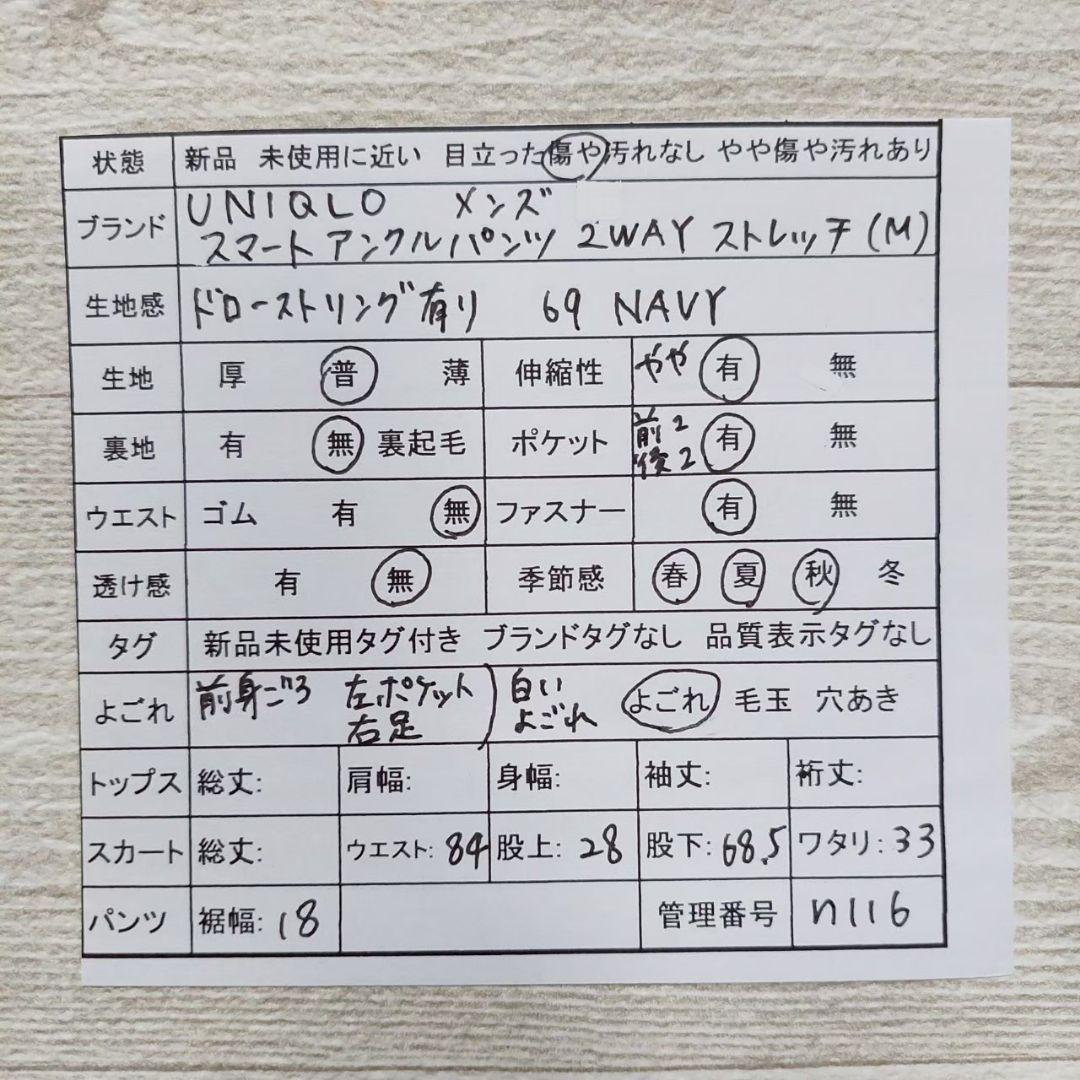 状態 新品 未使用に近い 目立った傷や汚れなし やや傷や汚れあり
ブランド UNIQLO メンズ
スマートアンクルパンツ 2WAY ストレッチ (M)
生地感 ドローストリング有り 69 NAVY
生地 厚 普 薄 伸縮性 やや 有 無
裏地 有 無 裏起毛 ポケット 前2 後2 有 無
ウエスト ゴム 有 無 ファスナー 有 無
透け感 有 無 季節感 春 夏 秋 冬
タグ 新品未使用タグ付き ブランドタグなし 品質表示タグなし
よごれ 前身ごろ 左ポケット 右足 ) 白いよごれ よごれ 毛玉 穴あき
トップス 総丈: 肩幅: 身幅: 袖丈: 裄丈:
スカート 総丈: ウエスト: 84 股上: 28 股下: 68.5 ワタリ: 33
パンツ 裾幅: 18 管理番号 n116